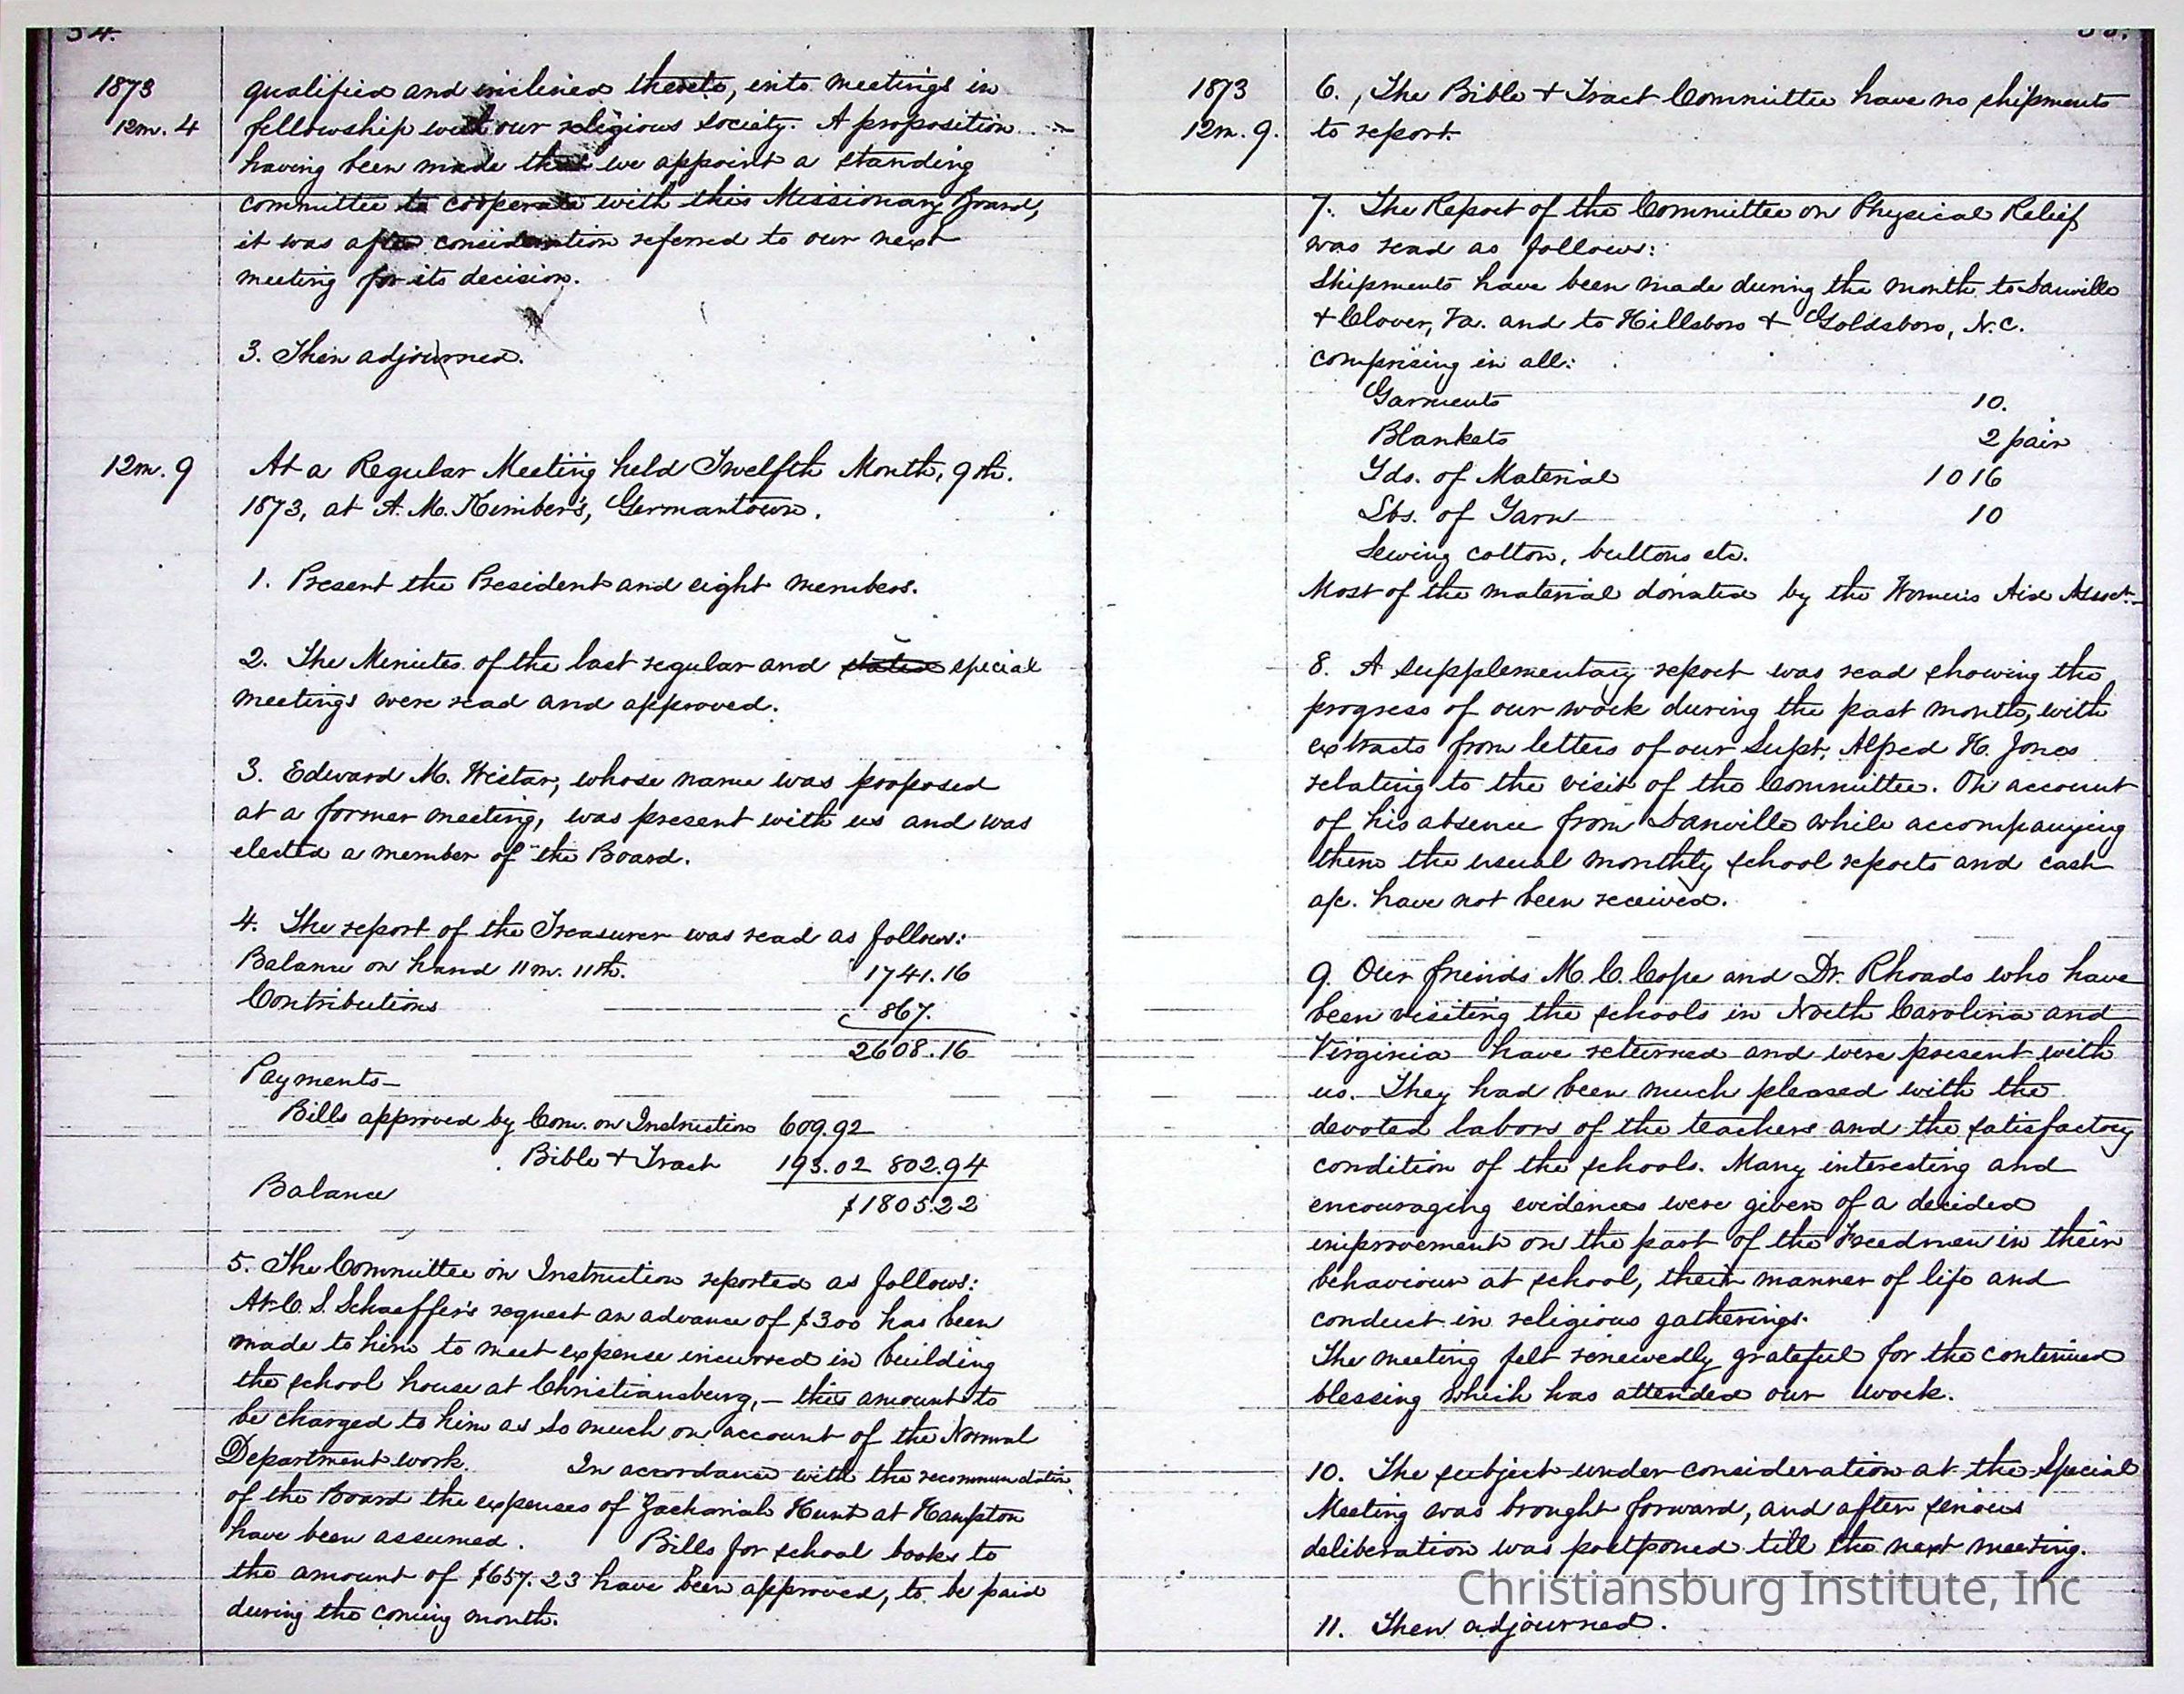 34.
1873
12m. 4
qualified and inclined thereto, into meetings in
fellowship with our religious society. A proposition
having been made that we appoint a standing
committee to cooperate with this Missionary Board,
it was after consideration referred to our next
meeting for its decision.
3. Then adjourned.
12m. 9
At a Regular Meeting held Twelfth Month, 9th.
1873, at A. M. Kimber's, Germantown.
1. Present the President and eight members.
2. The Minutes of the last regular and stated special
meetings were read and approved.
3. Edward M. Wistar, whose name was proposed
at a former meeting, was present with us and was
elected a member of the Board.
4. The report of the Treasurer was read as follows:
Balance on hand 11m. 11th. 1741.16
Contributions 867.
2608.16
Payments—
Bills approved by Com. on Instruction 609.92
Bible & Tract 193.02 802.94
Balance $1805.22
5. The Committee on Instruction reported as follows:
At C. S. Schaeffer's request an advance of $300 has been
made to him to meet expense incurred in building
the school house at Christiansburg,— this amount to
be charged to him as so much on account of the Normal
Department work. In accordance with the recommendation
of the Board the expenses of Zachariah Hunt at Hampton
have been assumed. Bills for school books to
the amount of $657.23 have been approved, to be paid
during the coming month.
1873
12m. 9.
6. The Bible & Tract Committee have no shipments
to report.
7. The Report of the Committee on Physical Relief
was read as follows:
Shipments have been made during the month to Danville
& Clover, Va. and to Hillsboro & Goldsboro, N.C.
comprising in all:
Garments 10.
Blankets 2 pair
Yds. of Material 1016
Lbs. of Yarn 10
Sewing cotton, buttons etc.
Most of the material donated by the Women's Aid Assoc.
8. A supplementary report was read showing the
progress of our work during the past month, with
extracts from letters of our Supt. Alfred H. Jones
relating to the visit of the Committee. On account
of his absence from Danville while accompanying
them the usual monthly school reports and cash
a/c. have not been received.
9. Our friends M. C. Cope and Dr. Rhoads who have
been visiting the schools in North Carolina and
Virginia have returned and were present with
us. They had been much pleased with the
devoted labors of the teachers and the satisfactory
condition of the schools. Many interesting and
encouraging evidences were given of a decided
improvement on the part of the Freedmen in their
behaviour at school, their manner of life and
conduct in religious gatherings.
The meeting felt renewedly grateful for the continued
blessing which has attended our work.
10. The subject under consideration at the Special
Meeting was brought forward, and after serious
deliberation was postponed till the next meeting.
Christiansburg Institute, Inc
11. Then adjourned.